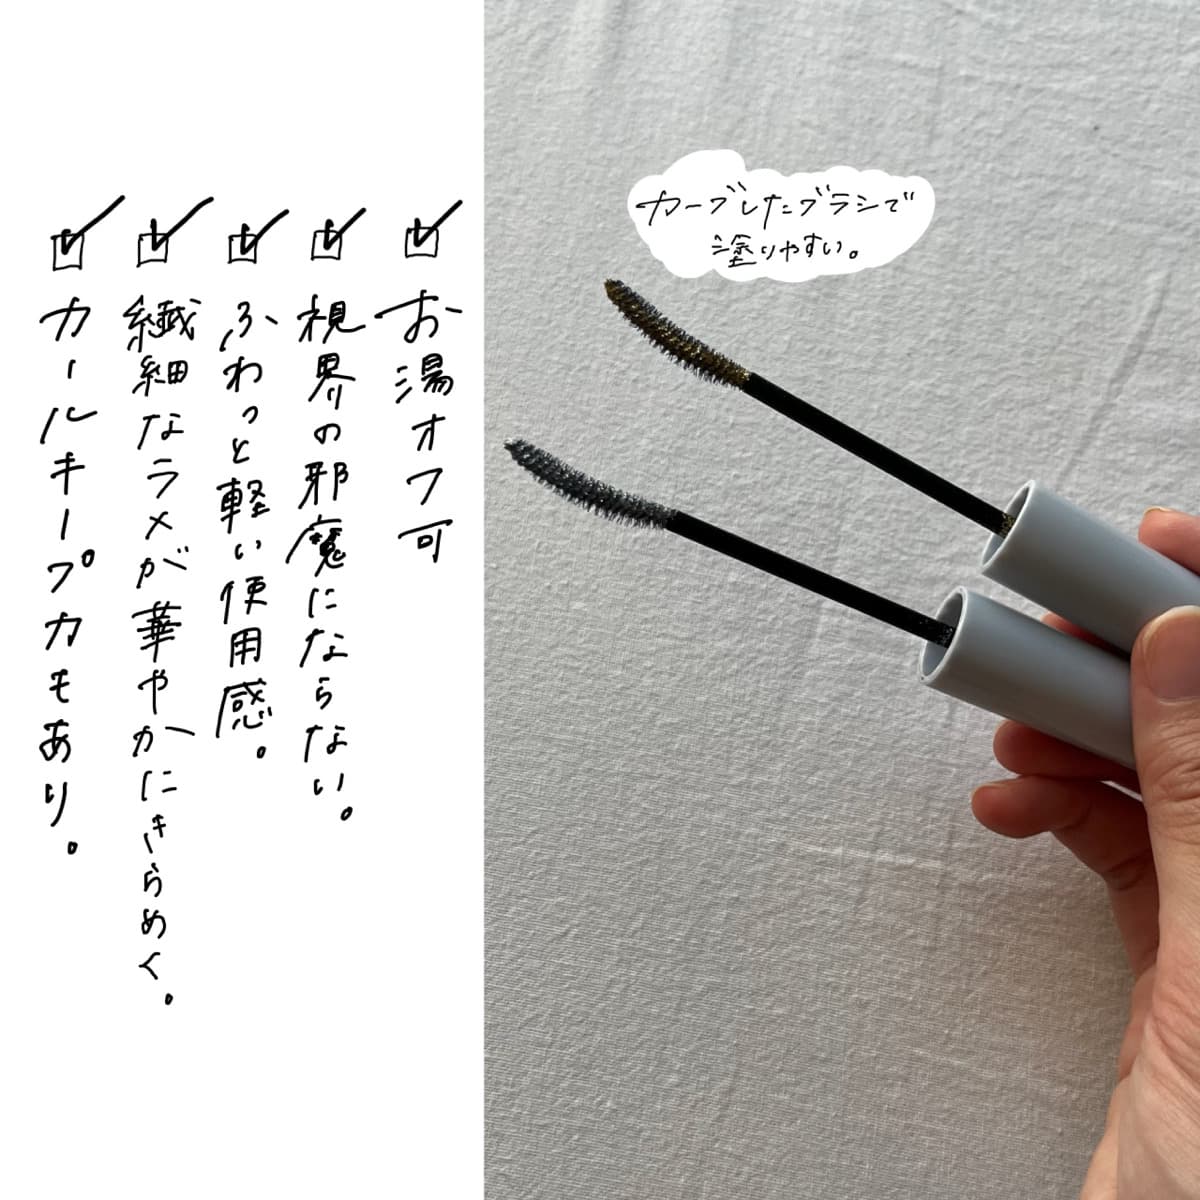 お湯オフ可
視界の邪魔にならない。
ふわっと軽い使用感。
繊細なラメが華やかにきらめく。
カールキープ力もあり。
カーブしたブラシで
塗りやすい。